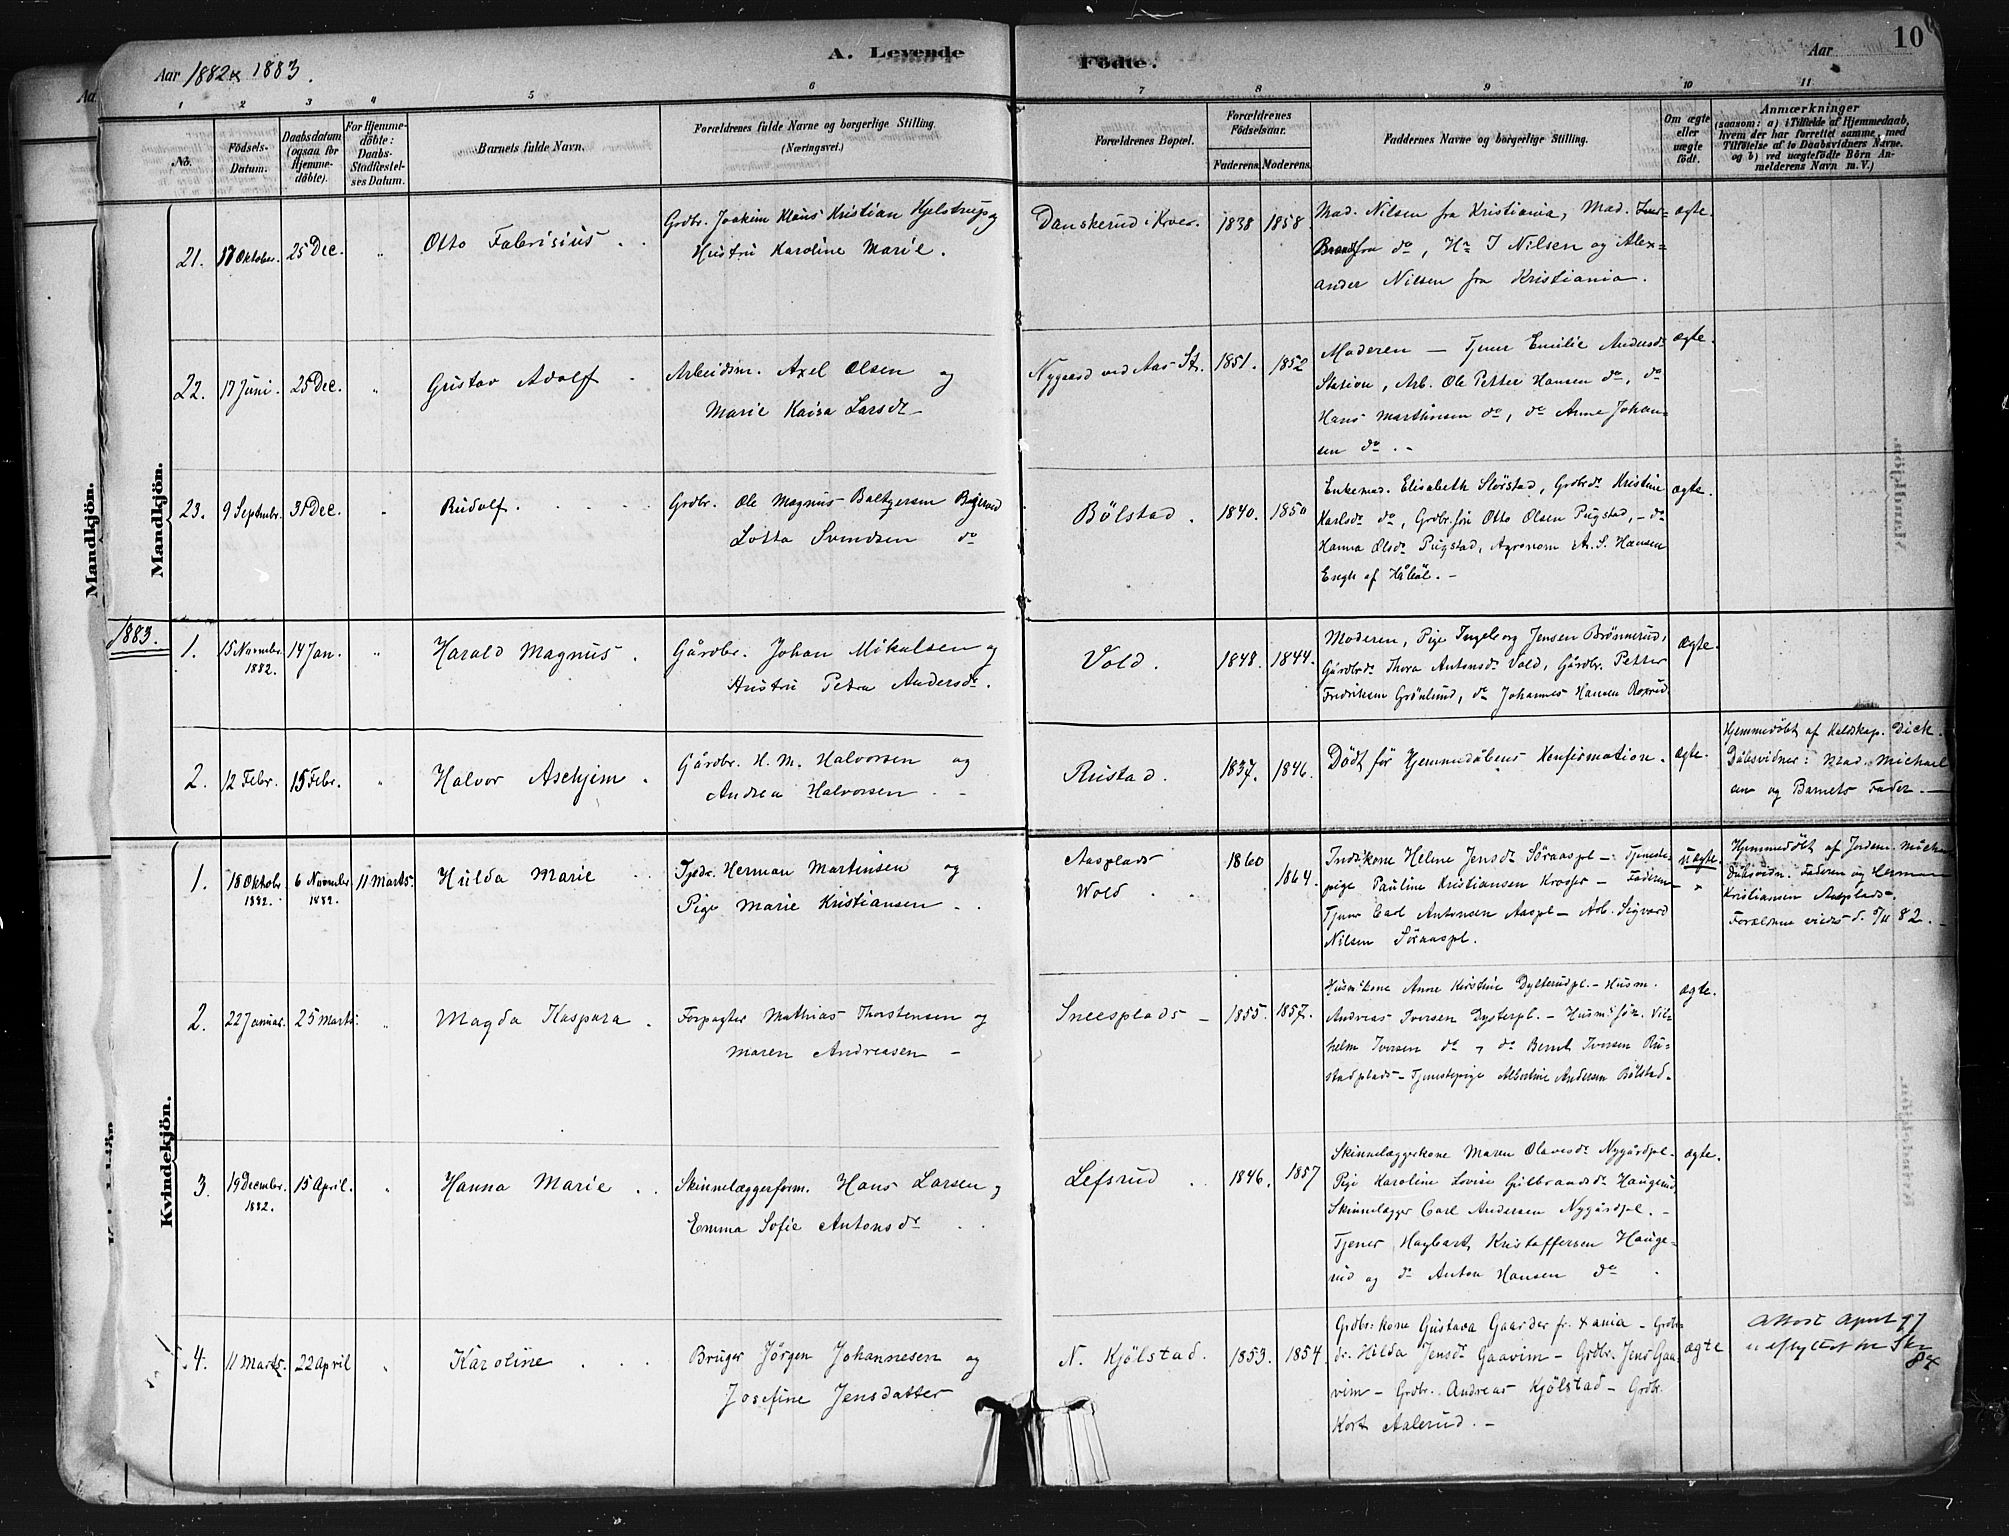 Aar 1882 & 1883.
A. Levende
Födte.
Aar
10
1 2 3 4 5 6 7 8 9 10 11
No.
Födsels-Datum.
Daabsdatum (ogsaa for Hjemmedöbte).
For Hjemmedöbte: Daabs-Stadfæstelses Datum.
Barnets fulde Navn.
Forældrenes fulde Navne og borgerlige Stilling.
(Næringsvei.)
Forældrenes Bopæl.
Forældrenes Födselsaar.
Faderens. Moderens.
Faddernes Navne og borgerlige Stilling.
Om ægte eller uægte födt.
Anmærkninger
(saasom: a) i Tilfælde af Hjemmedaab,
hvem der har forrettet samme, med
Tilföielse af to Daabsvidners Navne.
og b) ved uægtefödte Börn Anmelderens Navn m. V.)
Mandkjön.
Mandkjön.
21. 17 Oktober. 25 Dec. " Otto Fabrisius . .
Grdbr. Joakim Klaus Kristian Hjelstrup og
Hustru Karoline Marie.
Danskerud i Kroer. 1838 1858.
Mad. Nilsen fra Kristiania, Mad.
Brandt fra do, Hr I Nilsen og Alex-
ander Nilsen fra Kristiania.
ægte.
22. 17 Juni. 25 Dec. " Gustav Adolf .
Arbeidsm. Axel Olsen og
Marie Kaisa Larsdt.
Nygaard ved Aas St. 1851. 1852
Moderen — Tjener Emilie Andersdr
Station, Arb. Ole Petter Hansen do, do
Hans Marthinsen do, do Anne Johan-
sen do .-
ægte.
23. 9 Septembr. 31 Dec. " Rudolf. . . . .
Grdbr. Ole Magnus Baltzersen
Lotta Svendsen do
Bölstad. 1840. 1850
Enkemad. Elisabeth Störstad, Grdbrdr Kristine
Karlsdr do, Grdbr.sön Otto Olsen Pugstad, - do
Hanna Olsdr Pugstad, Agronom A. S. Hansen
Engh af Håböl. -
ægte.
1883.
1. 15 Novembr. 1882. 14 Jan. " Harald Magnus .
Gårdbr. Johan Mikalsen og
Hustru Petra Andersdr.
Vold. 1848. 1844.
Moderen, Pige Ingeborg Jensen Brönnerud,
Gårdbrdr Thora Antonsdr Vold, Gårdbr. Petter
Fredriksen Grönlund, do Johannes Hansen Roxrud
ægte.
2. 12 Febr. 15 Febr. " Halvor Aschjim .
Gårdbr. H. M. Halvorsen og
Andrea Halvorsen . -
Rustad. 1837. 1846.
Dödt för Hjemmedåbens Konfirmation.
ægte.
Hjemmedöbt af Dick.
Dåbsvidner: Mad. Michael
sen og Barnets Fader. —
Kvindekjön.
1. 18 Oktobr. 1882. 6 Novembr. 1882. 11 Marts. Hulda Marie . .
Tjedr. Herman Martinsen og
Pige Marie Kristiansen . .
Aasplads
Wold . .
1860
1864.
Inds.kone Helene Jensdr Söraaspl - Tjeneste-
pige Pauline Kristiansen Krosser - Faderen -
Tjener Carl Antonsen Aaspl - Arb. Sigvard
Nilsen Söraaspl.
uægte.
Hjemmedöbt af Jordem.
Dåbsvidn. Faderen og Herman
Kristiansen Aasplads.
Forældrene viede d. 82. -
2. 22 Januar. 25 Marts. " Magda Kaspara .
Forpagter Mathias Thorstensen og
Maren Andreasen -
Sneesplads - 1855. 1857.
Husm.kone Anne Kirstine Dysterudpl. - Husm.
Andreas Iversen Dysterpl. - Husm.sön Vil-
helm Iversen do, do Bernt Iversen Ru-
stadplads - Tjenestepige Albertine Andersen Bölstad -
ægte.
3. 19 Decembr. 1882. 15 April. " Hanna Marie . .
Skinnelæggerform. Hans Larsen og
Emma Sofie Antonsdr . .
Lefsrud . . 1846. 1857
Skinnelæggerkone Maren Olavesdr Nygårdpl.-
Pige Karoline Lovise Gulbrandsdr Haugerud
Skinnelægger Carl Andersen Nygårdpl. -
Tjener Hagbart Kristoffersen Hauge-
rud og do Anton Hansen do .
ægte.
4. 11 Marts. 22 April " Karoline . . .
Bruger Jörgen Johannesen og
Josefine Jensdatter
N. Kjölstad. 1853. 1854
Grdbr.kone Gustava Gaarder fr. Xania - Grdbr-
dr. Hilda Jensdr Gaavim - Grdbr. Jens Gaa-
vim - Grdbr. Andreas Kjölstad - Grdbr.
Kort Aalerud. -
ægte
Attest April 97